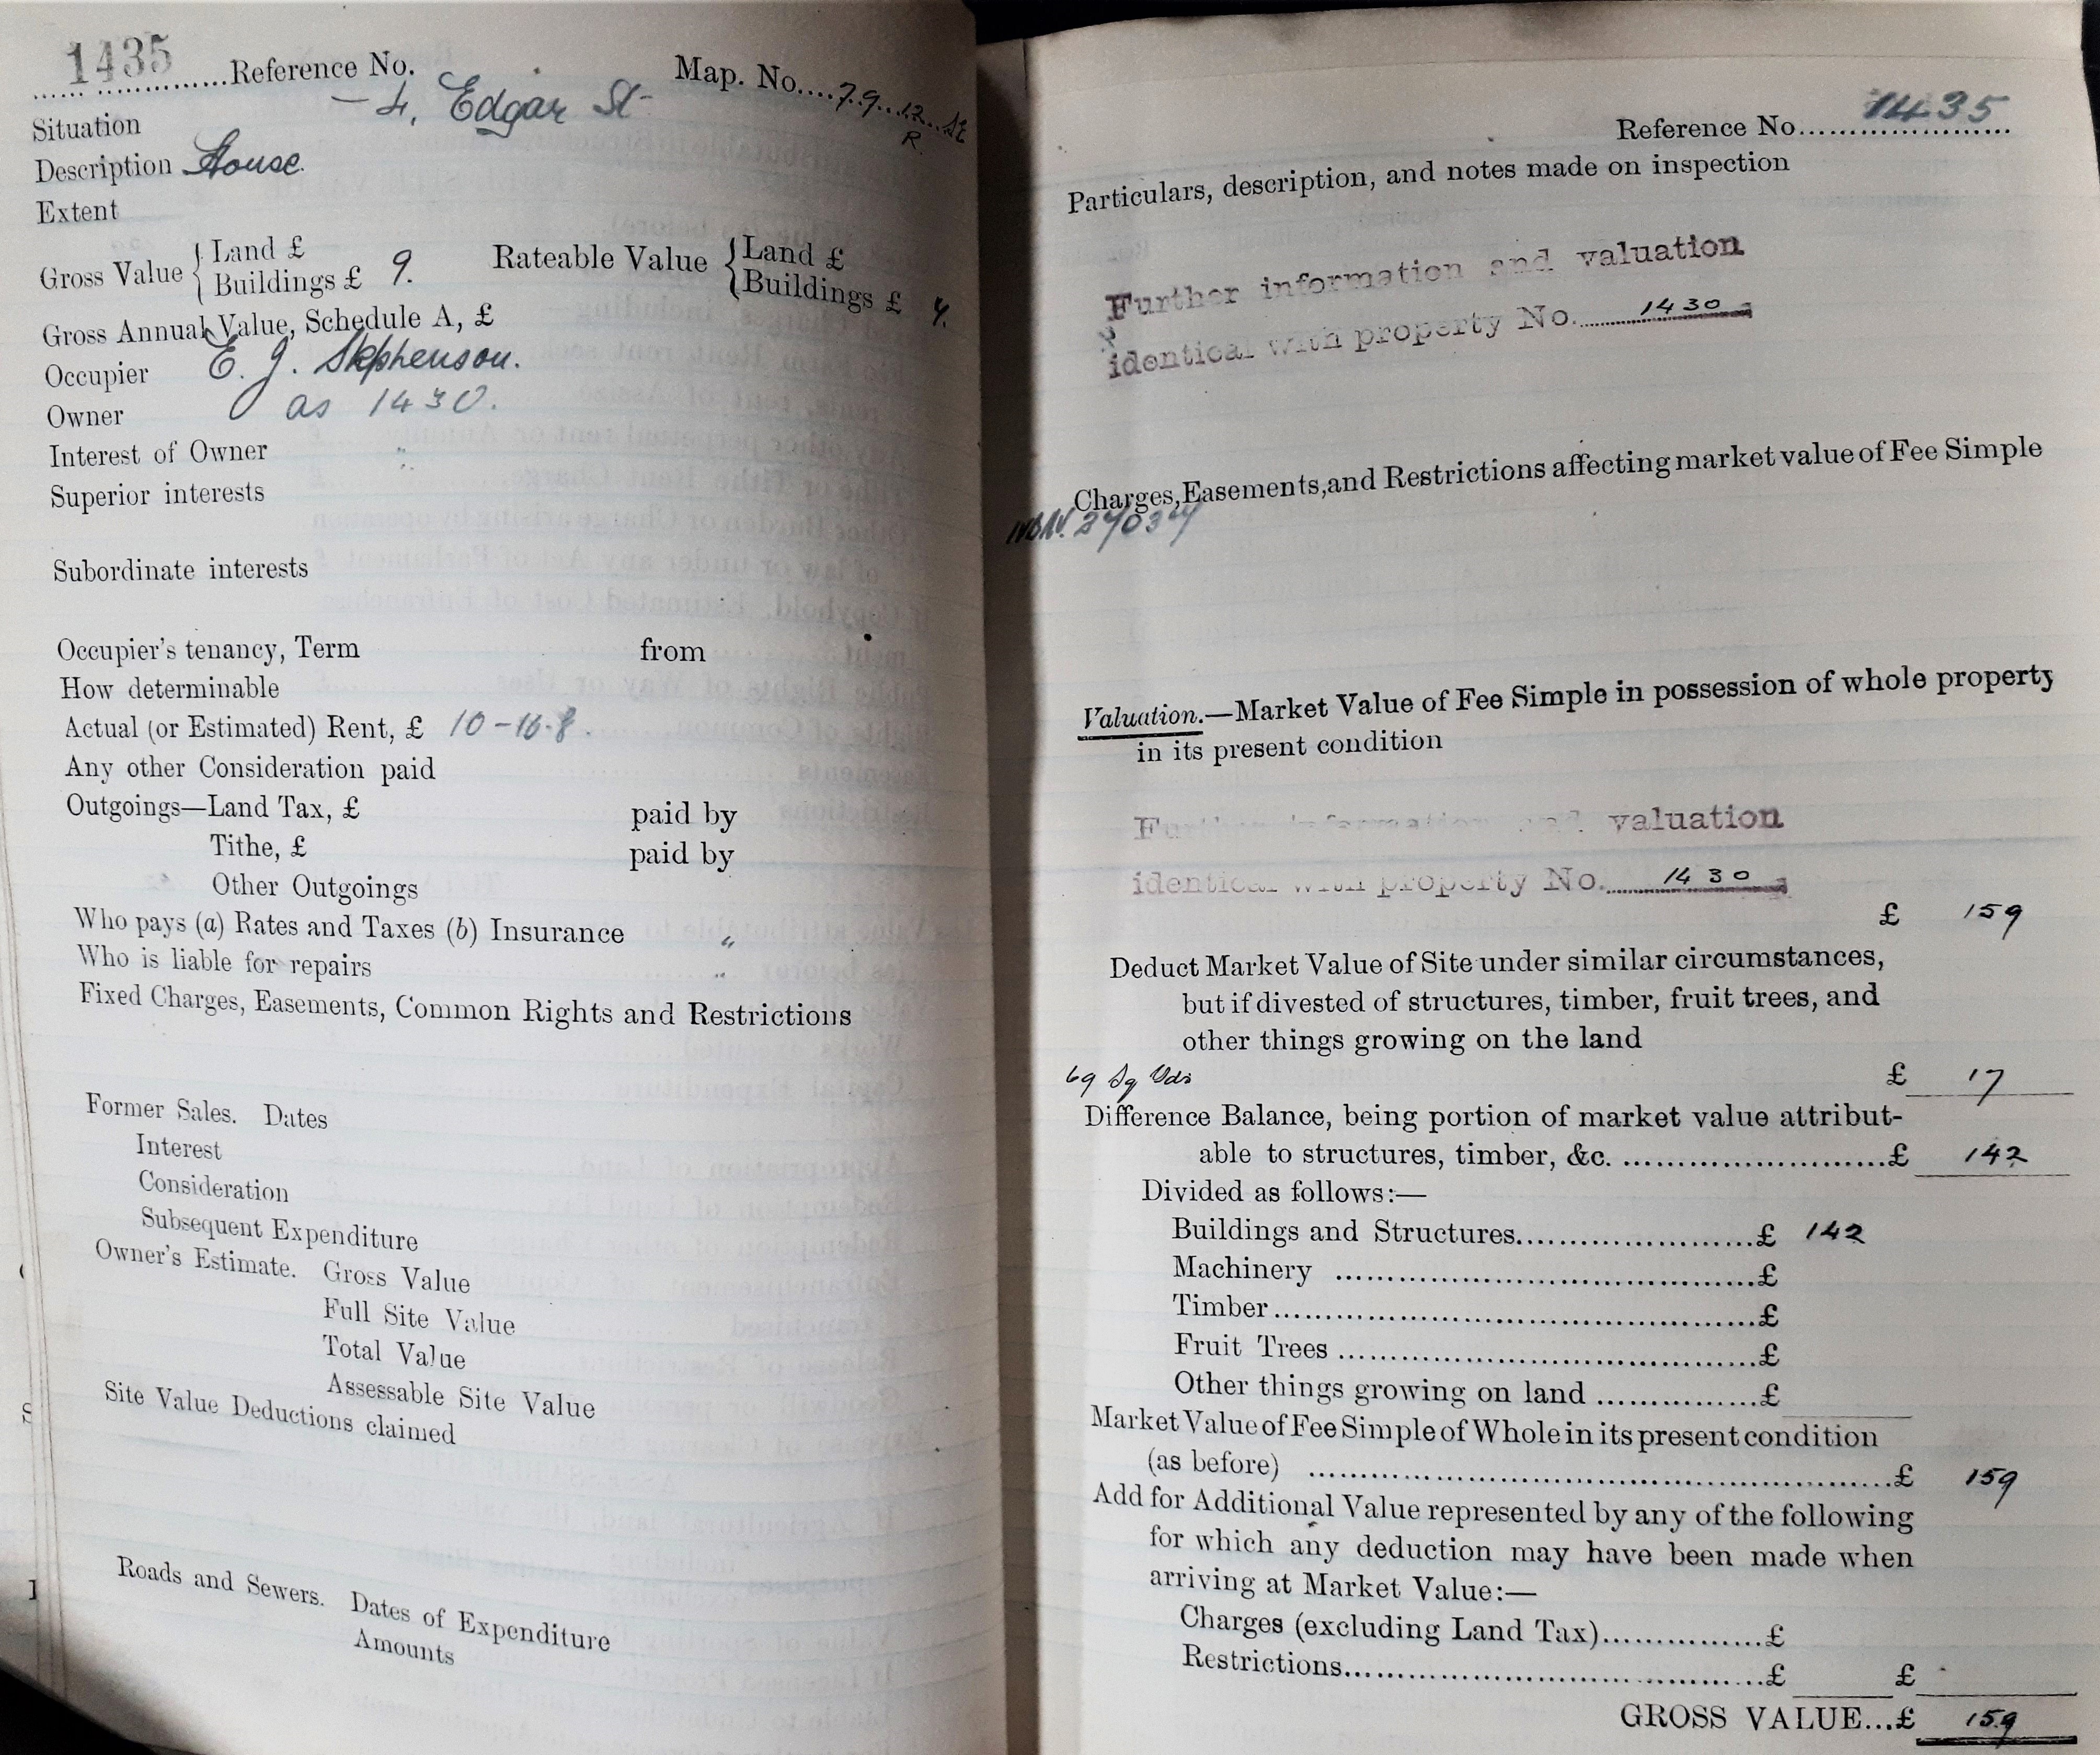 1435 Reference No. Map. No. 79.12. SE
R.
Situation 4, Edgar St
Description House.
Extent
Gross Value { Land £
Buildings £ 9.
Rateable Value { Land £
Buildings £ 7.
Gross Annual Value, Schedule A, £
Occupier E. J. Stephenson.
Owner as 1430.
Interest of Owner "
Superior interests
Subordinate interests
Occupier's tenancy, Term from
How determinable
Actual (or Estimated) Rent, £ 10-16-8.
Any other Consideration paid
Outgoings—Land Tax, £ paid by
Tithe, £ paid by
Other Outgoings
Who pays (a) Rates and Taxes (b) Insurance "
Who is liable for repairs "
Fixed Charges, Easements, Common Rights and Restrictions
Former Sales. Dates
Interest
Consideration
Subsequent Expenditure
Owner's Estimate. Gross Value
Full Site Value
Total Value
Assessable Site Value
Site Value Deductions claimed
Roads and Sewers. Dates of Expenditure
Amounts
Reference No. 1435
Particulars, description, and notes made on inspection
Further information and valuation
identical with property No. 1430
Charges, Easements, and Restrictions affecting market value of Fee Simple
Valuation.—Market Value of Fee Simple in possession of whole property
in its present condition
Further information and valuation
identical with property No. 1430
£ 159
Deduct Market Value of Site under similar circumstances,
but if divested of structures, timber, fruit trees, and
other things growing on the land
69 Sq Yds £ 17
Difference Balance, being portion of market value attribut-
able to structures, timber, &c. £ 142
Divided as follows:—
Buildings and Structures £ 142
Machinery £
Timber £
Fruit Trees £
Other things growing on land £
Market Value of Fee Simple of Whole in its present condition
(as before) £ 159
Add for Additional Value represented by any of the following
for which any deduction may have been made when
arriving at Market Value:—
Charges (excluding Land Tax) £
Restrictions £ £
GROSS VALUE...£ 159